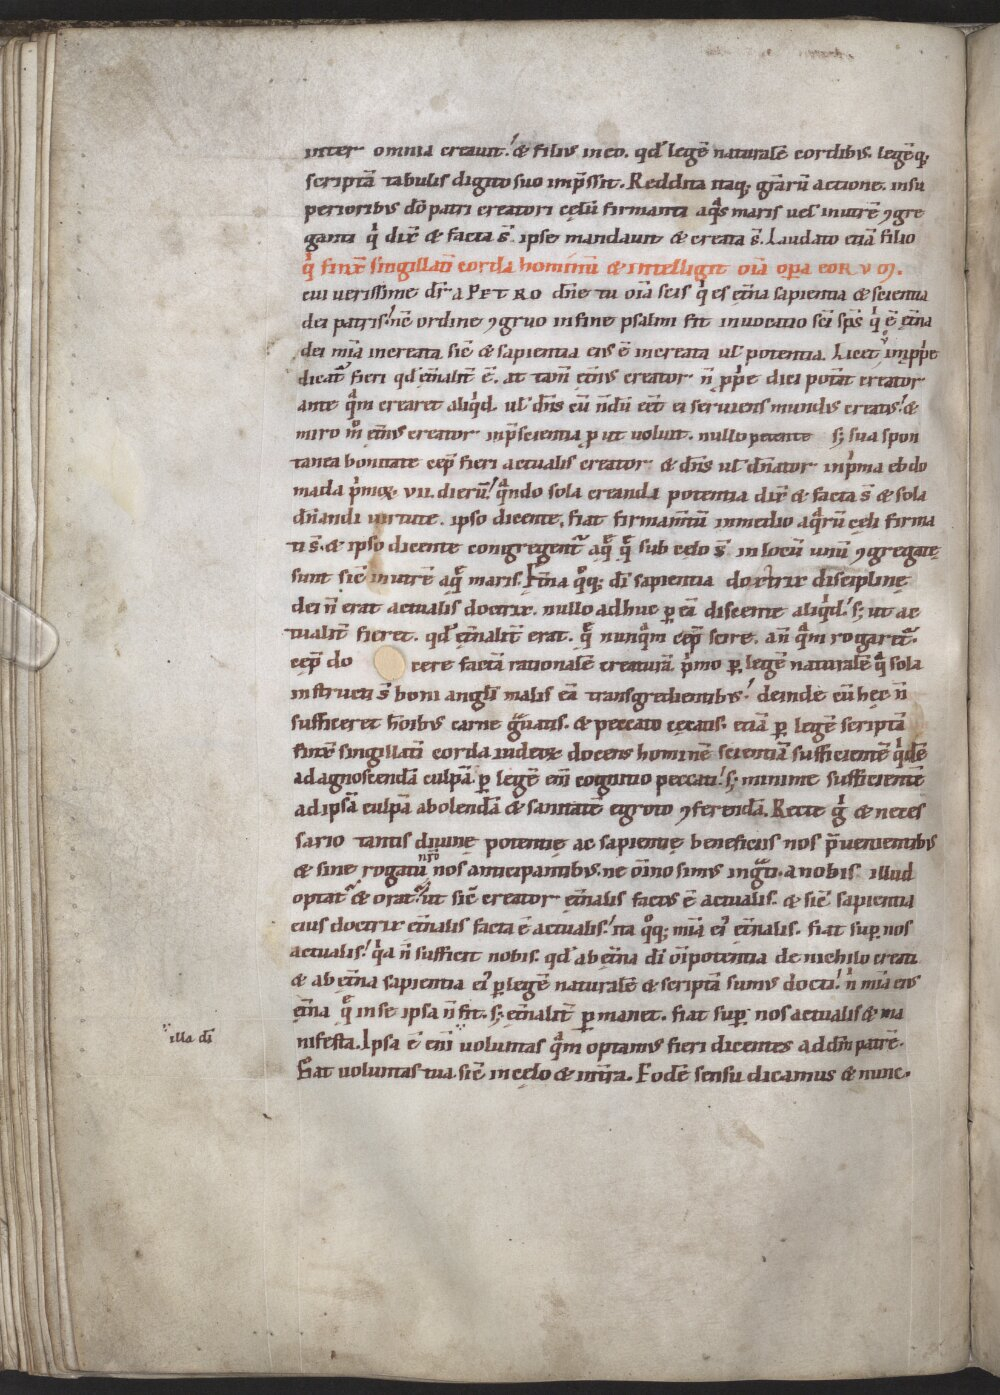 inter omnia creauit. & filius in eo. qđ legē naturalē cordibus. legēq;
scriptā tabulis digito suo imp̄ssit. Reddita itaq; gr̄arū actione. in su
perioribus dō patri creatori cęlū firmanti aq̄s maris uel in utrē ꝯgre
ganti q̇ dix̄ & facta s̄. ipse mandauit & creata s̄. Laudato etiā filio
q̇ finx̄ singillatī corda hominū & intelligit oīa oꝑa eorum.
cui uerissime dr̄ a PETRO dn̄e tu oīa scis q̇ es ęt̄na sapientia & scientia
dei patris. nc̄ ordine ꝯgruo in fine psalmi fit inuocatio sc̄i sp̄s q̇ ē ęt̄na
dei mīa increata sic̄ & sapientia eius ē increata ul̄ potentia. Licet imꝓp̄e
dicat̄ fieri qđ ęt̄nalit̄ ē. at tam̄ ęt̄nus creator n̄ ꝓp̄e dici pot̄at creator
ante q̄m crearet aliq̇d. ul̄ dn̄s cū n̄dū eēt ei seruiens mundus creatus. &
miro m̊ ęt̄nus creator in p̄scientia ꝓut uoluit. nullo petente s; sua spon
tanea bonitate cęp̄ fieri actualis creator & dn̄s ul̄ dn̄ator in ṗma ebdo
mada ṗmoꝝ. VII. dierū. q̄ndo sola creandi potentia dix̄ & facta s̄ & sola
dn̄andi uirtute. ipso dicente. fiat firmam̄tū in medio aq̄rū cęli firma
ti s̄. & ipso dicente congregent̄ aq̄ q̄ sub cęlo s̄ in locū unū ꝯgregatę
sunt sic̄ in utrē aq̄ maris. Ęt̄na q̊q; dī sapientia doctrix disciplinę
dei n̄ erat actualis doctrix. nullo adhuc ꝑ eā discente aliq̇d. s; ut ac
tualit̄ fieret. qđ ęt̄nalit̄ erat. q̄ nunq̄m cęp̄ scire. an̄ q̄m rogaret̄.
cęp̄ do cere factā rationalē creaturā ṗmo ꝑ legē naturalē q̄ sola
instructi s̄ boni angl̄i malis eā transgredientibus. deinde cū hęc n̄
sufficeret hōibus carne g̃uatis. & peccato cęcatis. etiā ꝑ legē scriptā
finx̄ singillatī corda iudeoꝝ docens hominē scientiā sufficientē q̇dē
ad agnoscendā culpā. ꝑ legē eni cognitio peccati. s; minime sufficientē
ad ipsā culpā abolendā & sanitatē egroto ꝯferendā. Recte g̊ & neces
sario tantis diuinę potentię ac sapientię beneficiis nos p̄uenientibus
& sine rogatu nr̄o nos anticipantibus. ne om̄ino simus ing̃ti. a nobis illud
optat̄ & orat̄. ut sic̄ creator ęt̄nalis factus ē actualis. & sic̄ sapientia
eius doctrix ęt̄nalis facta ē actualis. ita q̊q; mīa ei' ęt̄nalis. fiat suꝑ nos
actualis. q̇a n̄ sufficit nobis. qđ ab ęt̄na dī om̄ipotentia de nichilo creati
& ab ęt̄na sapientia ei' ꝑ legē naturalē & scriptā sumus docti. n̄ mīa eius
ęt̄na q̄ in se ipsa n̄ fit. s; ęt̄nalit̄ ꝑmanet. fiat suꝑ nos actualis & ma
nifesta. Ipsa ē eni uoluntas q̄m optamus fieri dicentes ad dm̄ patrē.
illa dī
Fiat uoluntas tua sic̄ in cęlo & in tr̄a. Eodē sensu dicamus & nunc.